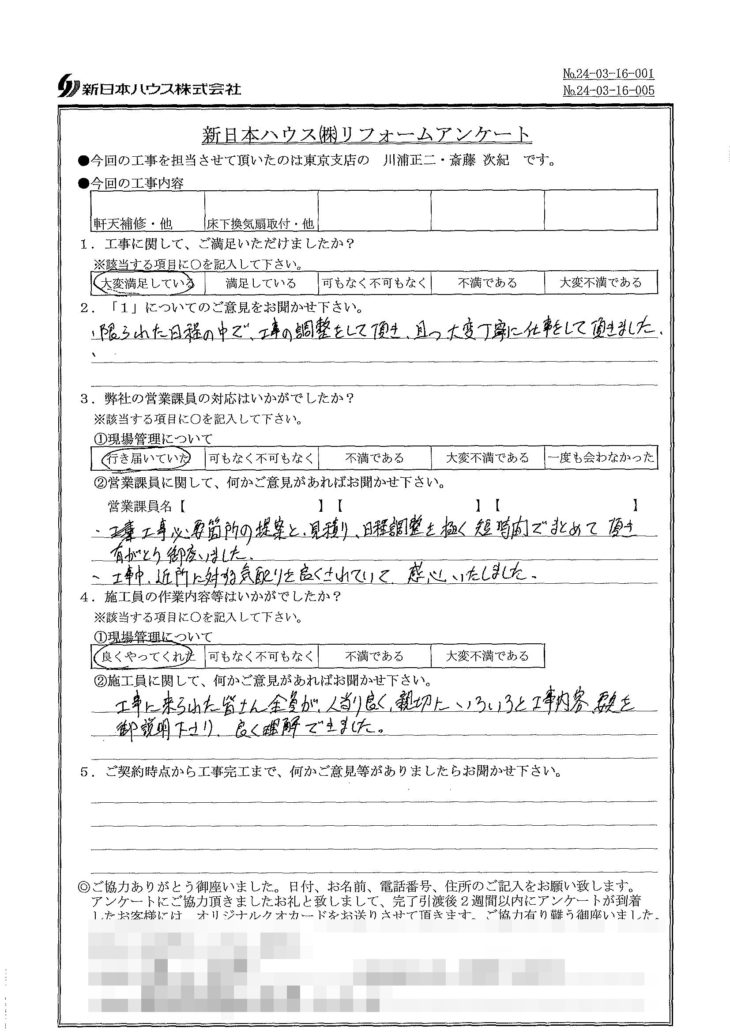 新日本ハウス株式会社
№24-03-16-001
№24-03-16-005
新日本ハウス㈱リフォームアンケート
●今回の工事を担当させて頂いたのは東京支店の 川浦正二・斎藤 次紀 です。
●今回の工事内容
軒天補修・他 床下換気扇取付・他
1．工事に関して、ご満足いただけましたか？
※該当する項目に○を記入して下さい。
大変満足している 満足している 可もなく不可もなく 不満である 大変不満である
2．「1」についてのご意見をお聞かせ下さい。
・限られた日程の中で、工事の調整をして頂き、且つ大変丁寧に仕事をして頂きました。
3．弊社の営業課員の対応はいかがでしたか？
※該当する項目に○を記入して下さい。
①現場管理について
行き届いていた 可もなく不可もなく 不満である 大変不満である 一度も会わなかった
②営業課員に関して、何かご意見があればお聞かせ下さい。
営業課員名【 】【 】【 】
・工事必要箇所の提案と、見積り、日程調整を極く短時間でまとめて頂き
有がとう御座いました。
・工事中、近所に対する気配りを良くされていて、感心いたしました。
4．施工員の作業内容等はいかがでしたか？
※該当する項目に○を記入して下さい。
①現場管理について
良くやってくれた 可もなく不可もなく 不満である 大変不満である
②施工員に関して、何かご意見があればお聞かせ下さい。
工事に来られた皆さん全員が、人当り良く、親切にいろいろと工事内容を
御説明下さり、良く理解できました。
5．ご契約時点から工事完工まで、何かご意見等がありましたらお聞かせ下さい。
◎ご協力ありがとう御座いました。日付、お名前、電話番号、住所のご記入をお願い致します。
アンケートにご協力頂きましたお礼と致しまして、完了引渡後2週間以内にアンケートが到着
したお客様には、オリジナルクオカードをお送りさせて頂きます。ご協力有り難う御座いました。